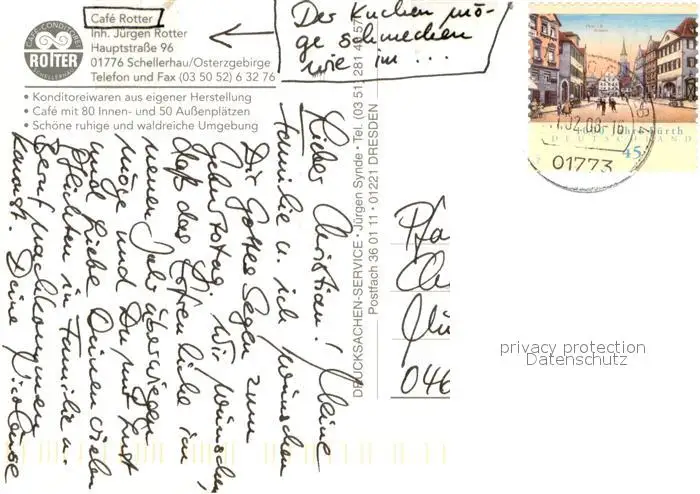 Café Rotter
Inh. Jürgen Rotter
Hauptstraße 96
01776 Schellerhau/Osterzgebirge
Telefon und Fax (03 50 52) 6 32 76
CAFÉ-CONDITOREI
ROTTER
SCHELLERHAU
• Konditoreiwaren aus eigener Herstellung
• Café mit 80 Innen- und 50 Außenplätzen
• Schöne ruhige und waldreiche Umgebung
Der Kuchen mö-
ge schmecken
wie im ...
Lieber Christian! Meine
Familie u. ich wünschen
Dir Gottes Segen zum
Geburtstag. Wir wünschen,
daß das Offen liebe im
neuen Jahr überwiegen
möge und Du mit Lust
und Liebe Deinen vielen
Pflichten in Familie u.
Beruf nachkommen
kannst. Deine
DRUCKSACHEN-SERVICE · Jürgen Synde · Tel. (03 51) 281 46 57
Postfach 36 01 11 · 01221 DRESDEN
Pfa
046
1000 Jahre Fürth
DEUTSCHLAND
45
01773
privacy protection
Datenschutz